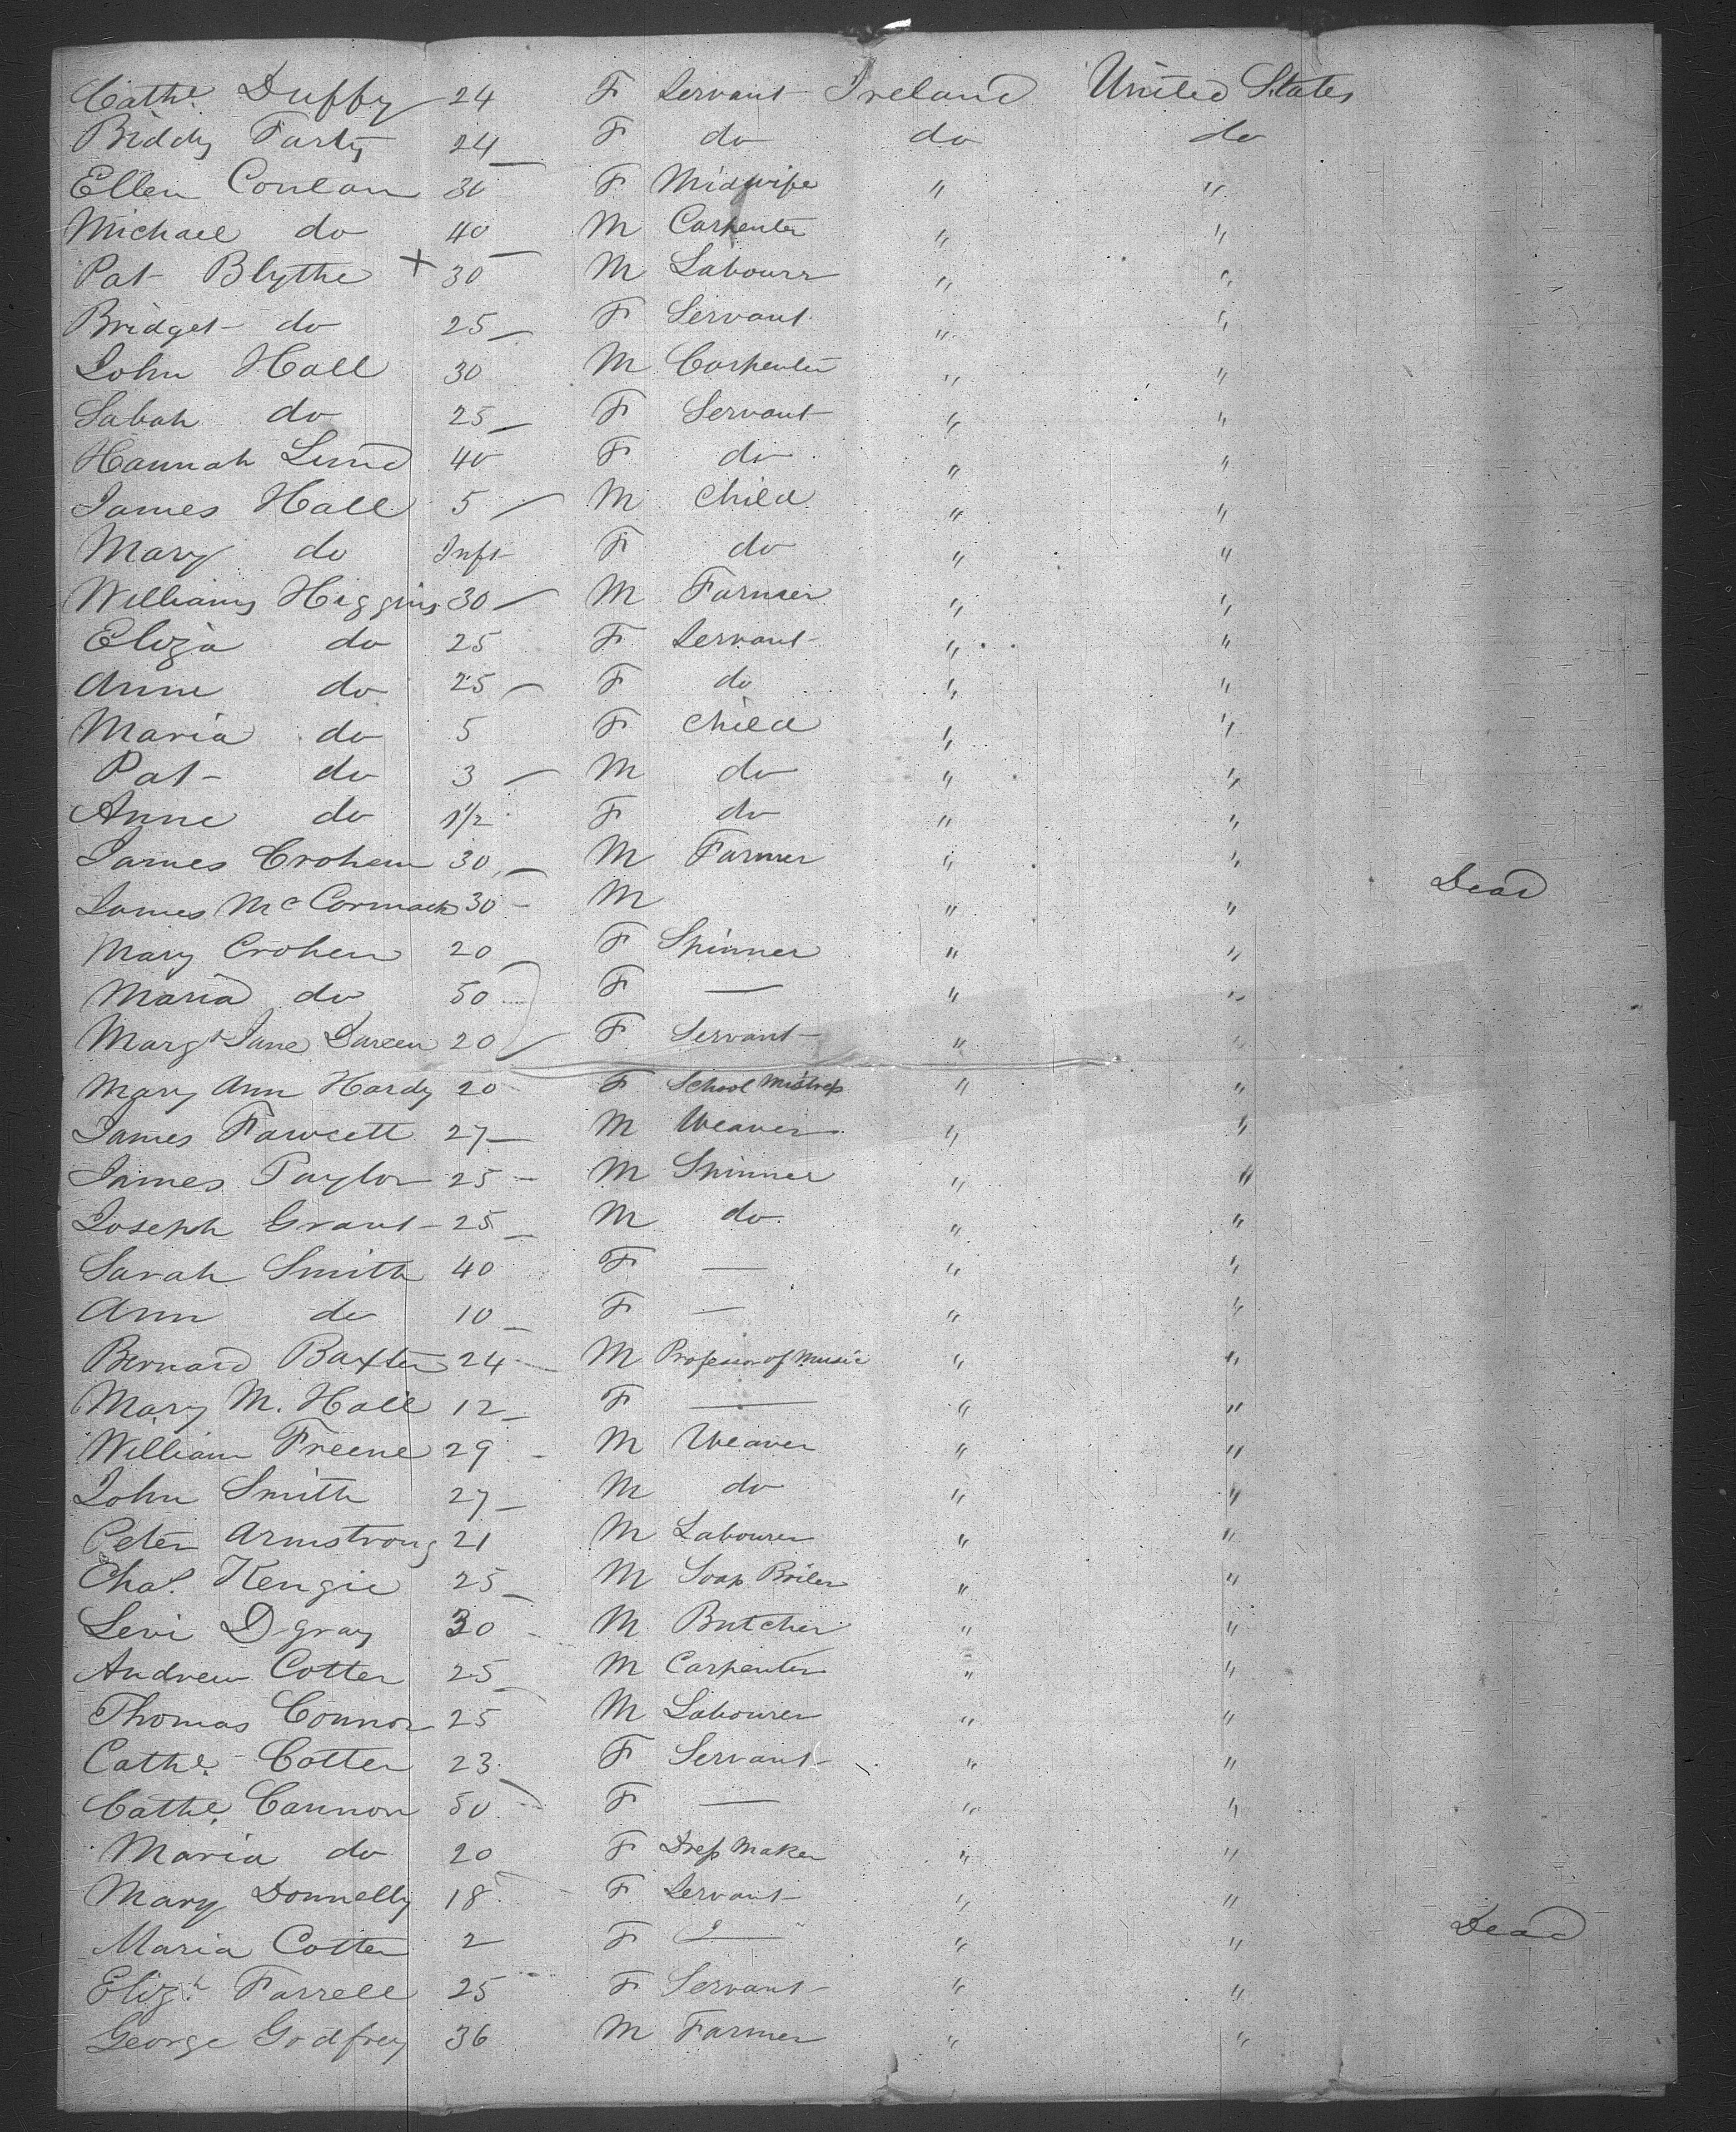 Cathe. Duffy 24 F Servant Ireland United States
Biddy Farty 24 F do do do
Ellen Conlan 30 F Midwife " "
Michael do 40 M Carpenter " "
Pat Blythe + 30 M Labourr " "
Bridget do 25 F Servant " "
John Hall 30 M Carpenter " "
Sabah do 25 F Servant " "
Hannah Lund 40 F do " "
James Hall 5 M Child " "
Mary do Inft F do " "
Williams Higgins 30 M Farmer " "
Eliza do 25 F Servant " "
Anne do 25 F do " "
Maria do 5 F Child " "
Pat do 3 M do " "
Anne do 1½ F do " "
James Crohen 30 M Farmer " "
James McCormack 30 M " " Dead
Mary Crohen 20 F Spinner " "
Maria do 50 F — " "
Margt Jane 20 F Servant " "
Mary Ann Hardy 20 F School Mistress " "
James Fawcett 27 M Weaver " "
James Taylor 25 M Spinner " "
Joseph Grant 25 M do " "
Sarah Smith 40 F — " "
Ann do 10 F — " "
Bernard Baxter 24 M Professor of Music " "
Mary M. Hall 12 F — " "
William Freene 29 M Weaver " "
John Smith 27 M do " "
Peter Armstrong 21 M Labourer " "
Chas. Kengie 25 M Soap Boiler " "
Levi D gray 30 M Butcher " "
Andrew Cotter 25 M Carpenter " "
Thomas Connor 25 M Labourer " "
Cathe. Cotter 23 F Servant " "
Cathe. Cannon 50 F — " "
Maria do 20 F Dress Maker " "
Mary Donnelly 18 F Servant " "
Maria Cotter 2 F — " " Dead
Elizh. Farrell 25 F Servant " "
George Godfrey 36 M Farmer " "